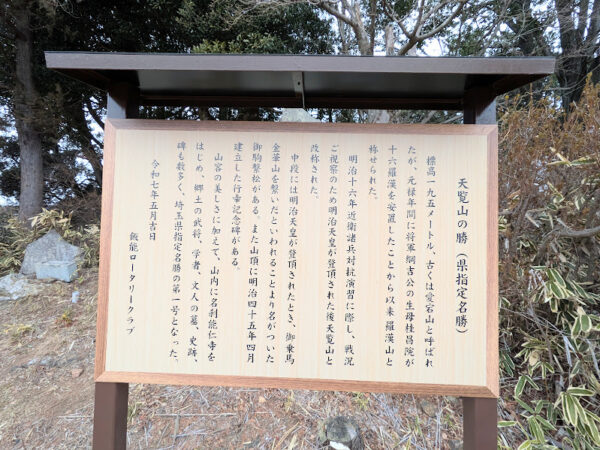 天覧山の勝(県指定名勝)
標高一九五メートル、古くは愛宕山と呼ばれ
たが、元禄年間に将軍綱吉公の生母桂昌院が
十六羅漢を安置したことから以来羅漢山と
称せられた。
明治十六年近衛諸兵対抗演習に際し、戦況
ご視察のため明治天皇が登頂された後天覧山と
改称された。
中段には明治天皇が登頂されたとき、御乗馬
金華山を繋いだといわれることより名がついた
御駒繋松がある。また山頂に明治四十五年四月
建立した行幸記念碑がある。
山容の美しさに加えて、山内に名刹能仁寺を
はじめ、郷土の武将、学者、文人の墓、史跡、
碑も数多く、埼玉県指定名勝の第一号となった。
令和七年五月吉日
飯能ロータリークラブ